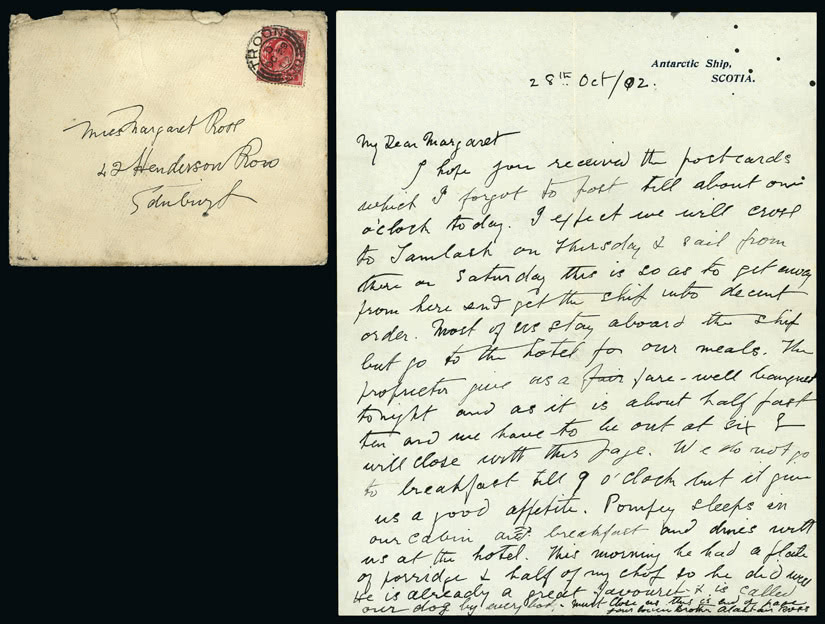 TROON
Miss Margaret Ross
42 Henderson Row
Edinburgh
Antarctic Ship,
SCOTIA.
28TH Oct/02.
My Dear Margaret
I hope you received the postcards
which I forgot to post till about one
o'clock today. I expect we will cross
to Lamlash on Thursday & sail from
there on Saturday this is so as to get away
from here and get the ship into decent
order. Most of us stay aboard the ship
but go to the hotel for our meals. The
proprietor give us a fair fare-well banquet
tonight and as it is about half past
ten and we have to be out at six I
will close with this page. We do not go
to breakfast till 9 o'clock but it give
us a good appetite. Pompey sleeps in
our cabin and breakfast and dines with
us at the hotel. This morning he had a plate
of porridge & half of my chop so he did well
He is already a great favourite & is called
our dog by everybody. must close as this is end of page
your loving brother Alastair Ross